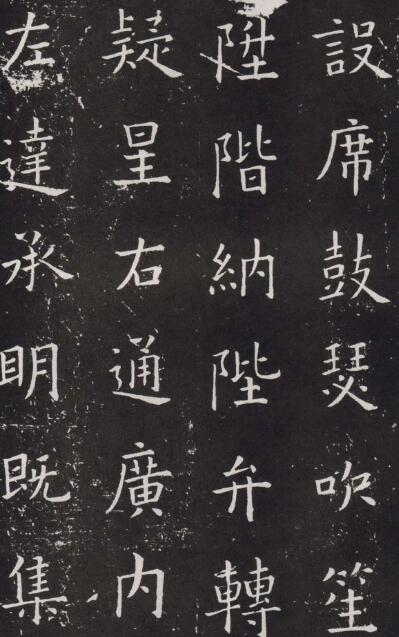 設席鼓瑟吹笙
陞階納陛弁轉
疑星右通廣内
左達承明既集